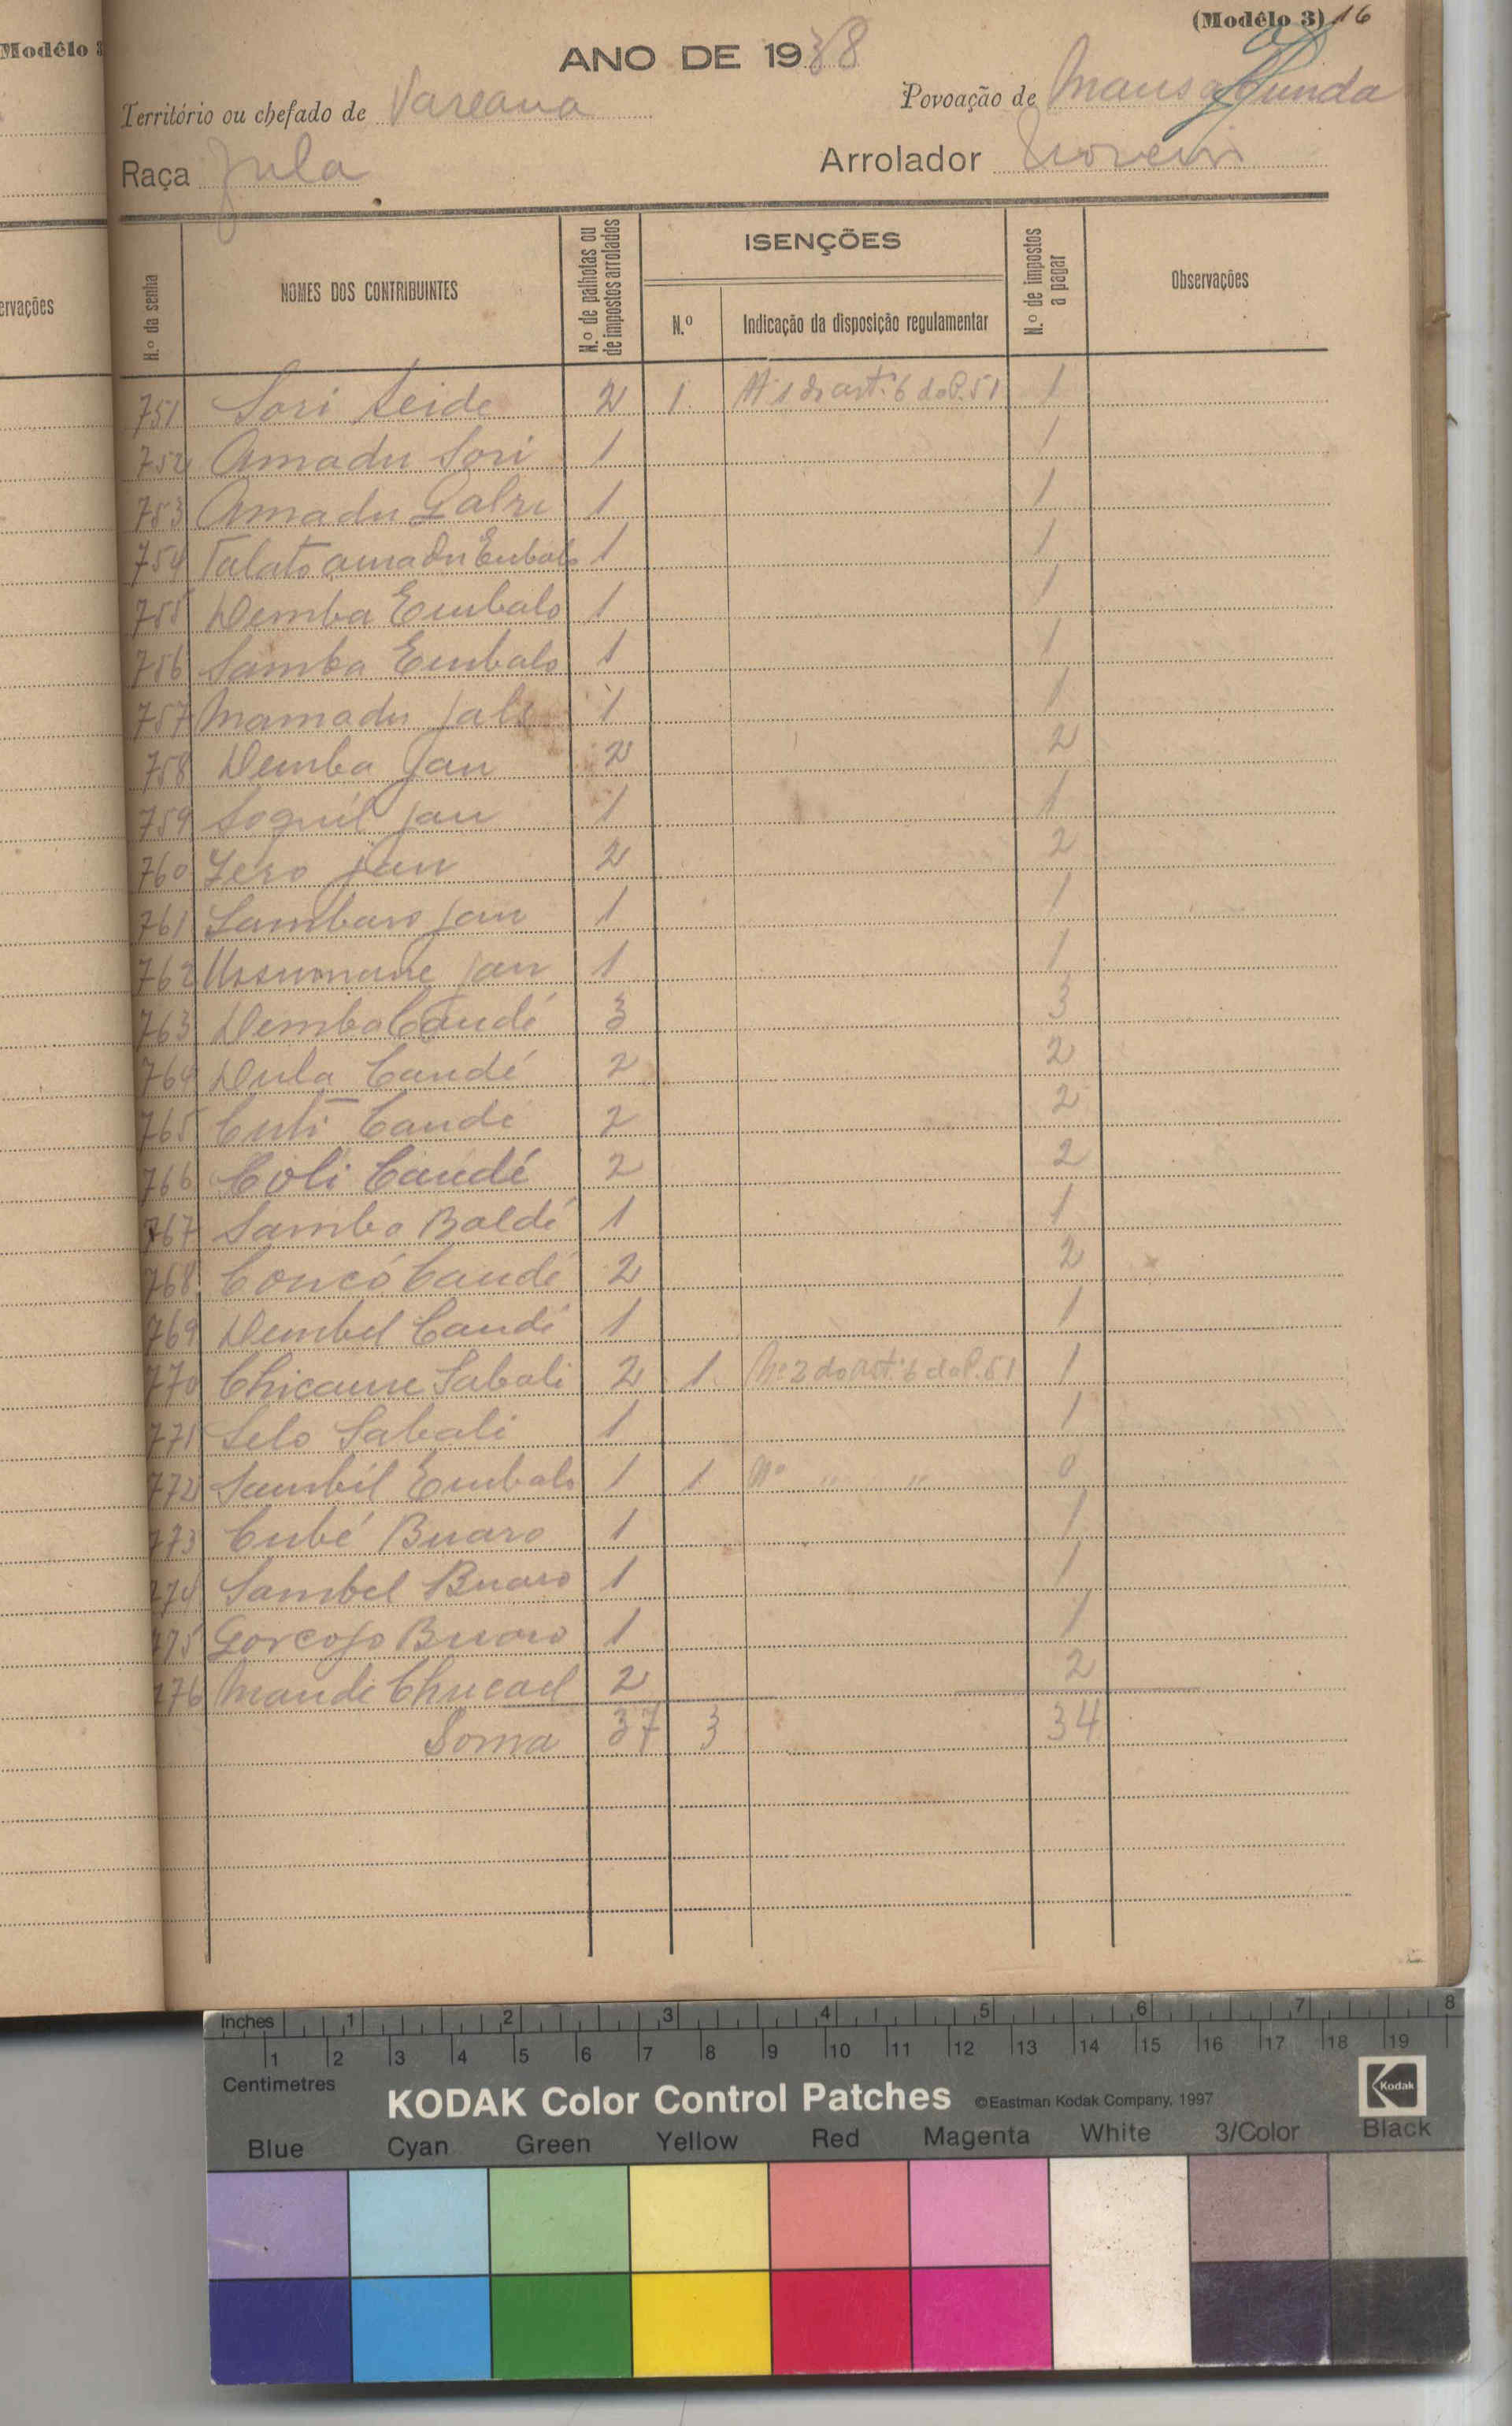 Modêlo 3
ervações
(Modêlo 3) 16
ANO DE 1938
Território ou chefado de Vareana
Povoação de Mansafunda
Raça Fula
Arrolador
N.º da senha
NOMES DOS CONTRIBUINTES
N.º de palhotas ou de impostos arrolados
ISENÇÕES
N.º
Indicação da disposição regulamentar
N.º de impostos a pagar
Observações
751 Sori Seide 2 1 Nº 1 do art.º 6 do P. 51 1
752 Amadu Sori 1 1
753 Amadu 1 1
754 Talato amadu Embalo 1 1
755 Demba Embalo 1 1
756 Samba Embalo 1 1
757 Mamadu Jalo 1 1
758 Demba Jau 2 2
759 Soquil Jau 1 1
760 Jero Jau 2 2
761 Sambaro Jau 1 1
762 Ussumane Jau 1 1
763 Demba Candé 3 3
764 Dula Candé 2 2
765 Cuti Candé 2 2
766 Coli Candé 2 2
767 Samba Baldé 1 1
768 Concó Candé 2 2
769 Dembel Candé 1 1
770 Chicaune Sabali 2 1 Nº 2 do art.º 6 do P. 51 1
771 Selo Sabali 1 1
772 Sambil Embalo 1 1 Nº " " 0
773 Cubé Buaro 1 1
774 Sambel Buaro 1 1
775 Buaro 1 1
776 2 2
Soma 37 3 34
Inches 1 2 3 4 5 6 7 8
1 2 3 4 5 6 7 8 9 10 11 12 13 14 15 16 17 18 19
Centimetres
KODAK Color Control Patches ©Eastman Kodak Company, 1997 Kodak
Blue Cyan Green Yellow Red Magenta White 3/Color Black